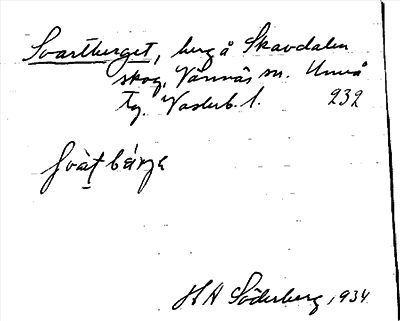 Svartberget, berg å Skavdalen
skog, Vännäs sn. Umeå
tg. Västerb. l. 232
svàt bærje
H A Söderberg, 1934